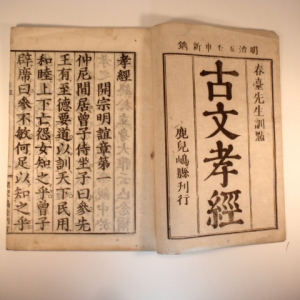 明治五壬申新鐫
春臺先生訓點
古文孝經
鹿兒嶋縣刊行
孝經
開宗明誼章第一
仲尼閒居曾子侍坐子曰參先
王有至德要道以訓天下民用
和睦上下亡怨女知之乎曾子
辟席曰參不敏何足以知之乎